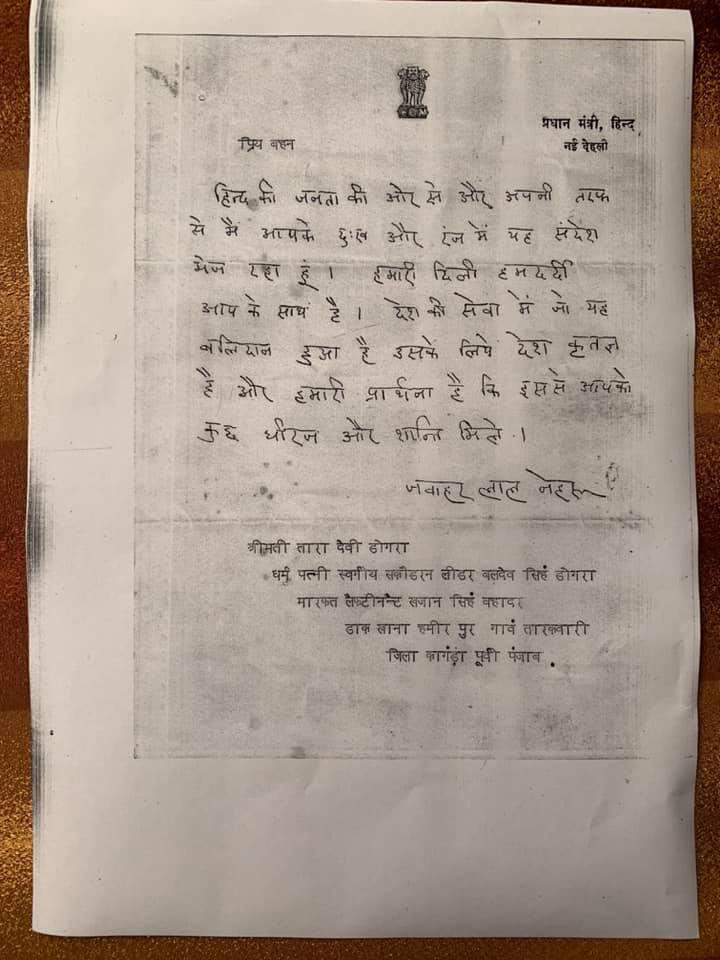 प्रधान मंत्री, हिन्द
नई देहली
प्रिय बहन
हिन्द की जनता की ओर से और अपनी तरफ
से मैं आपके दुःख और रंज में यह संदेश
भेज रहा हूं। हमारी दिली हमदर्दी
आप के साथ है। देश की सेवा में जो यह
बलिदान हुआ है उसके लिये देश कृतज्ञ
है और हमारी प्रार्थना है कि इससे आपको
कुछ धीरज और शान्ति मिले।
जवाहर लाल नेहरू
श्रीमती तारा देवी डोगरा
धर्म पत्नी स्वर्गीय स्क्वीडरन लीडर बलदेव सिहं डोगरा
मारफत लैफ्टीनैन्ट सजान सिहं बहादर
डाक खाना हमीर पुर गावं तारकवारी
जिला कागंड़ा पूर्वी पंजाब .